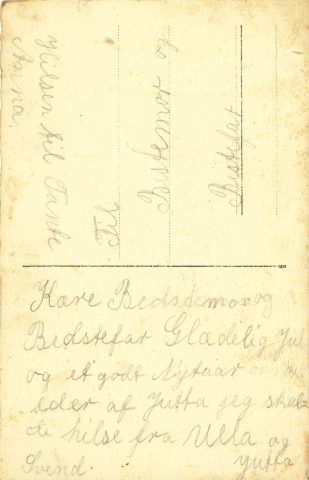 Kære Bedstemor og
Bedstefar Glædelig Jul
og et godt Nytaar ønskes
eder af Jutta jeg skul-
de hilse fra Ulla og
Svend. Jutta
Til
Bestemor og
Bestefar
Hilsen til Tante
Anna.